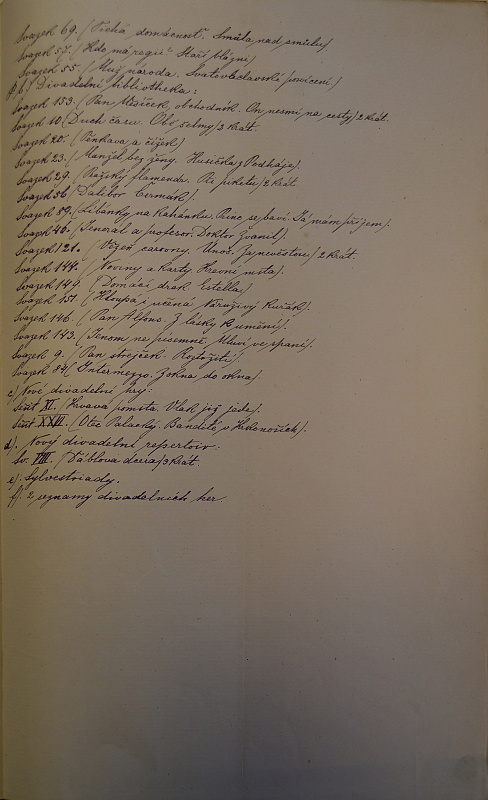 Svazek 69. (Tichá domácnost. Směla nad směly)
Svazek 57. (Kdo má regii? Staří blázni)
Svazek 55. (Muž národa. Svatováclavské posvícení)
b.) Divadelní bibliotheka:
Svazek 153. (Pan Měsíček, obchodník. On nesmí na cesty) 2 krát.
Svazek 10. Duch času. Obě šelmy) 3 krát.
Svazek 20. (Pěnkava a čížek)
Svazek 23. (Manžel bez ženy. Kusička z Podháje).
Svazek 29. (Pražský flamendr. Při piketu) 2 krát.
Svazek 56 (Dalibor Čermák).
Svazek 89. (Líbánky na Kahánku. Pěno se baví. Já mám příjem).
Svazek 46. (Jenerál a profesor. Doktor Zvanil).
Svazek 121. (Vězeň carsony. Únos. Tajnevěstou) 2 krát.
Svazek 144. (Noviny a karty. Krevní msta).
Svazek 149. (Domácí drak Estella)
Svazek 151. (Hloupá i učená Náruživý kuřák).
Svazek 146. (Pan Alfons. Z lásky k umění).
Svazek 143. (Jenom ne písemně. Mluví ve spaní).
Svazek 9. (Pan strejček. Roztržití)
Svazek 84 (Intermezzo. Z okna do okna).
c) Nové divadelní hry:
Sešit XI. (Krvavá pomsta. Vlak již jede).
Sešit XXIII. (Otec Palacký. Bandité v Krkonoších).
d). Nový divadelní repertoir:
Sv. VIII. (Ďáblova dcera) 3 krát.
e) Sylvestriady.
f) 2 seznamy divadelních her.